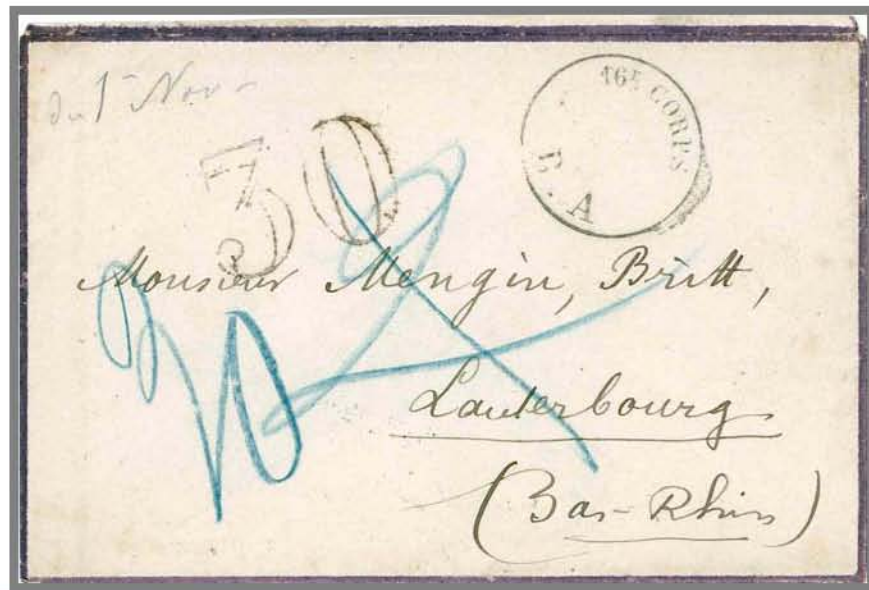 du 1er Nov
30
16E CORPS
B. A
Monsieur Mengin, Britt,
Lauterbourg
(Bas-Rhin)